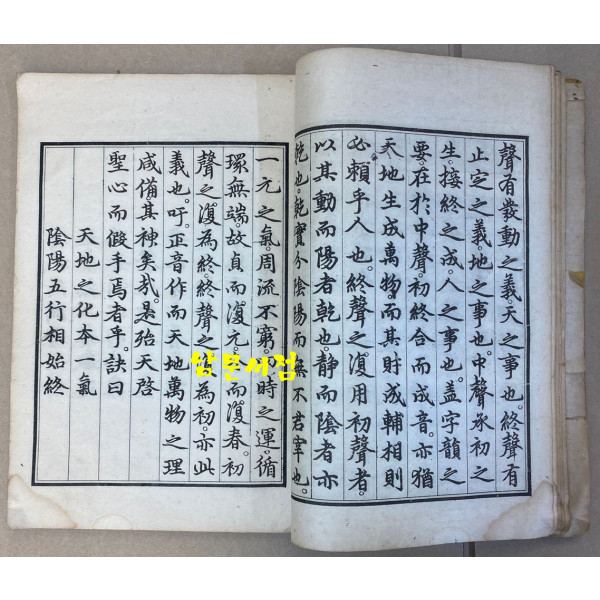 聲有發動之義。天之事也。終聲有
止定之義。地之事也。中聲承初之
生。接終之成。人之事也。盖字韻之
要。在於中聲。初終合而成音。亦猶
天地生成萬物。而其財成輔相則
必賴乎人也。終聲之復用初聲者。
以其動而陽者乾也。靜而陰者亦
乾也。乾實分陰陽而無不君宰也。
一元之氣。周流不窮。四時之運。循
環無端。故貞而復元。冬而復春。初
聲之復為終。終聲之復為初。亦此
義也。吁。正音作而天地萬物之理
咸備。其神矣哉。是殆天啓
聖心而假手焉者乎。訣曰
天地之化本一氣
陰陽五行相始終
남문서점